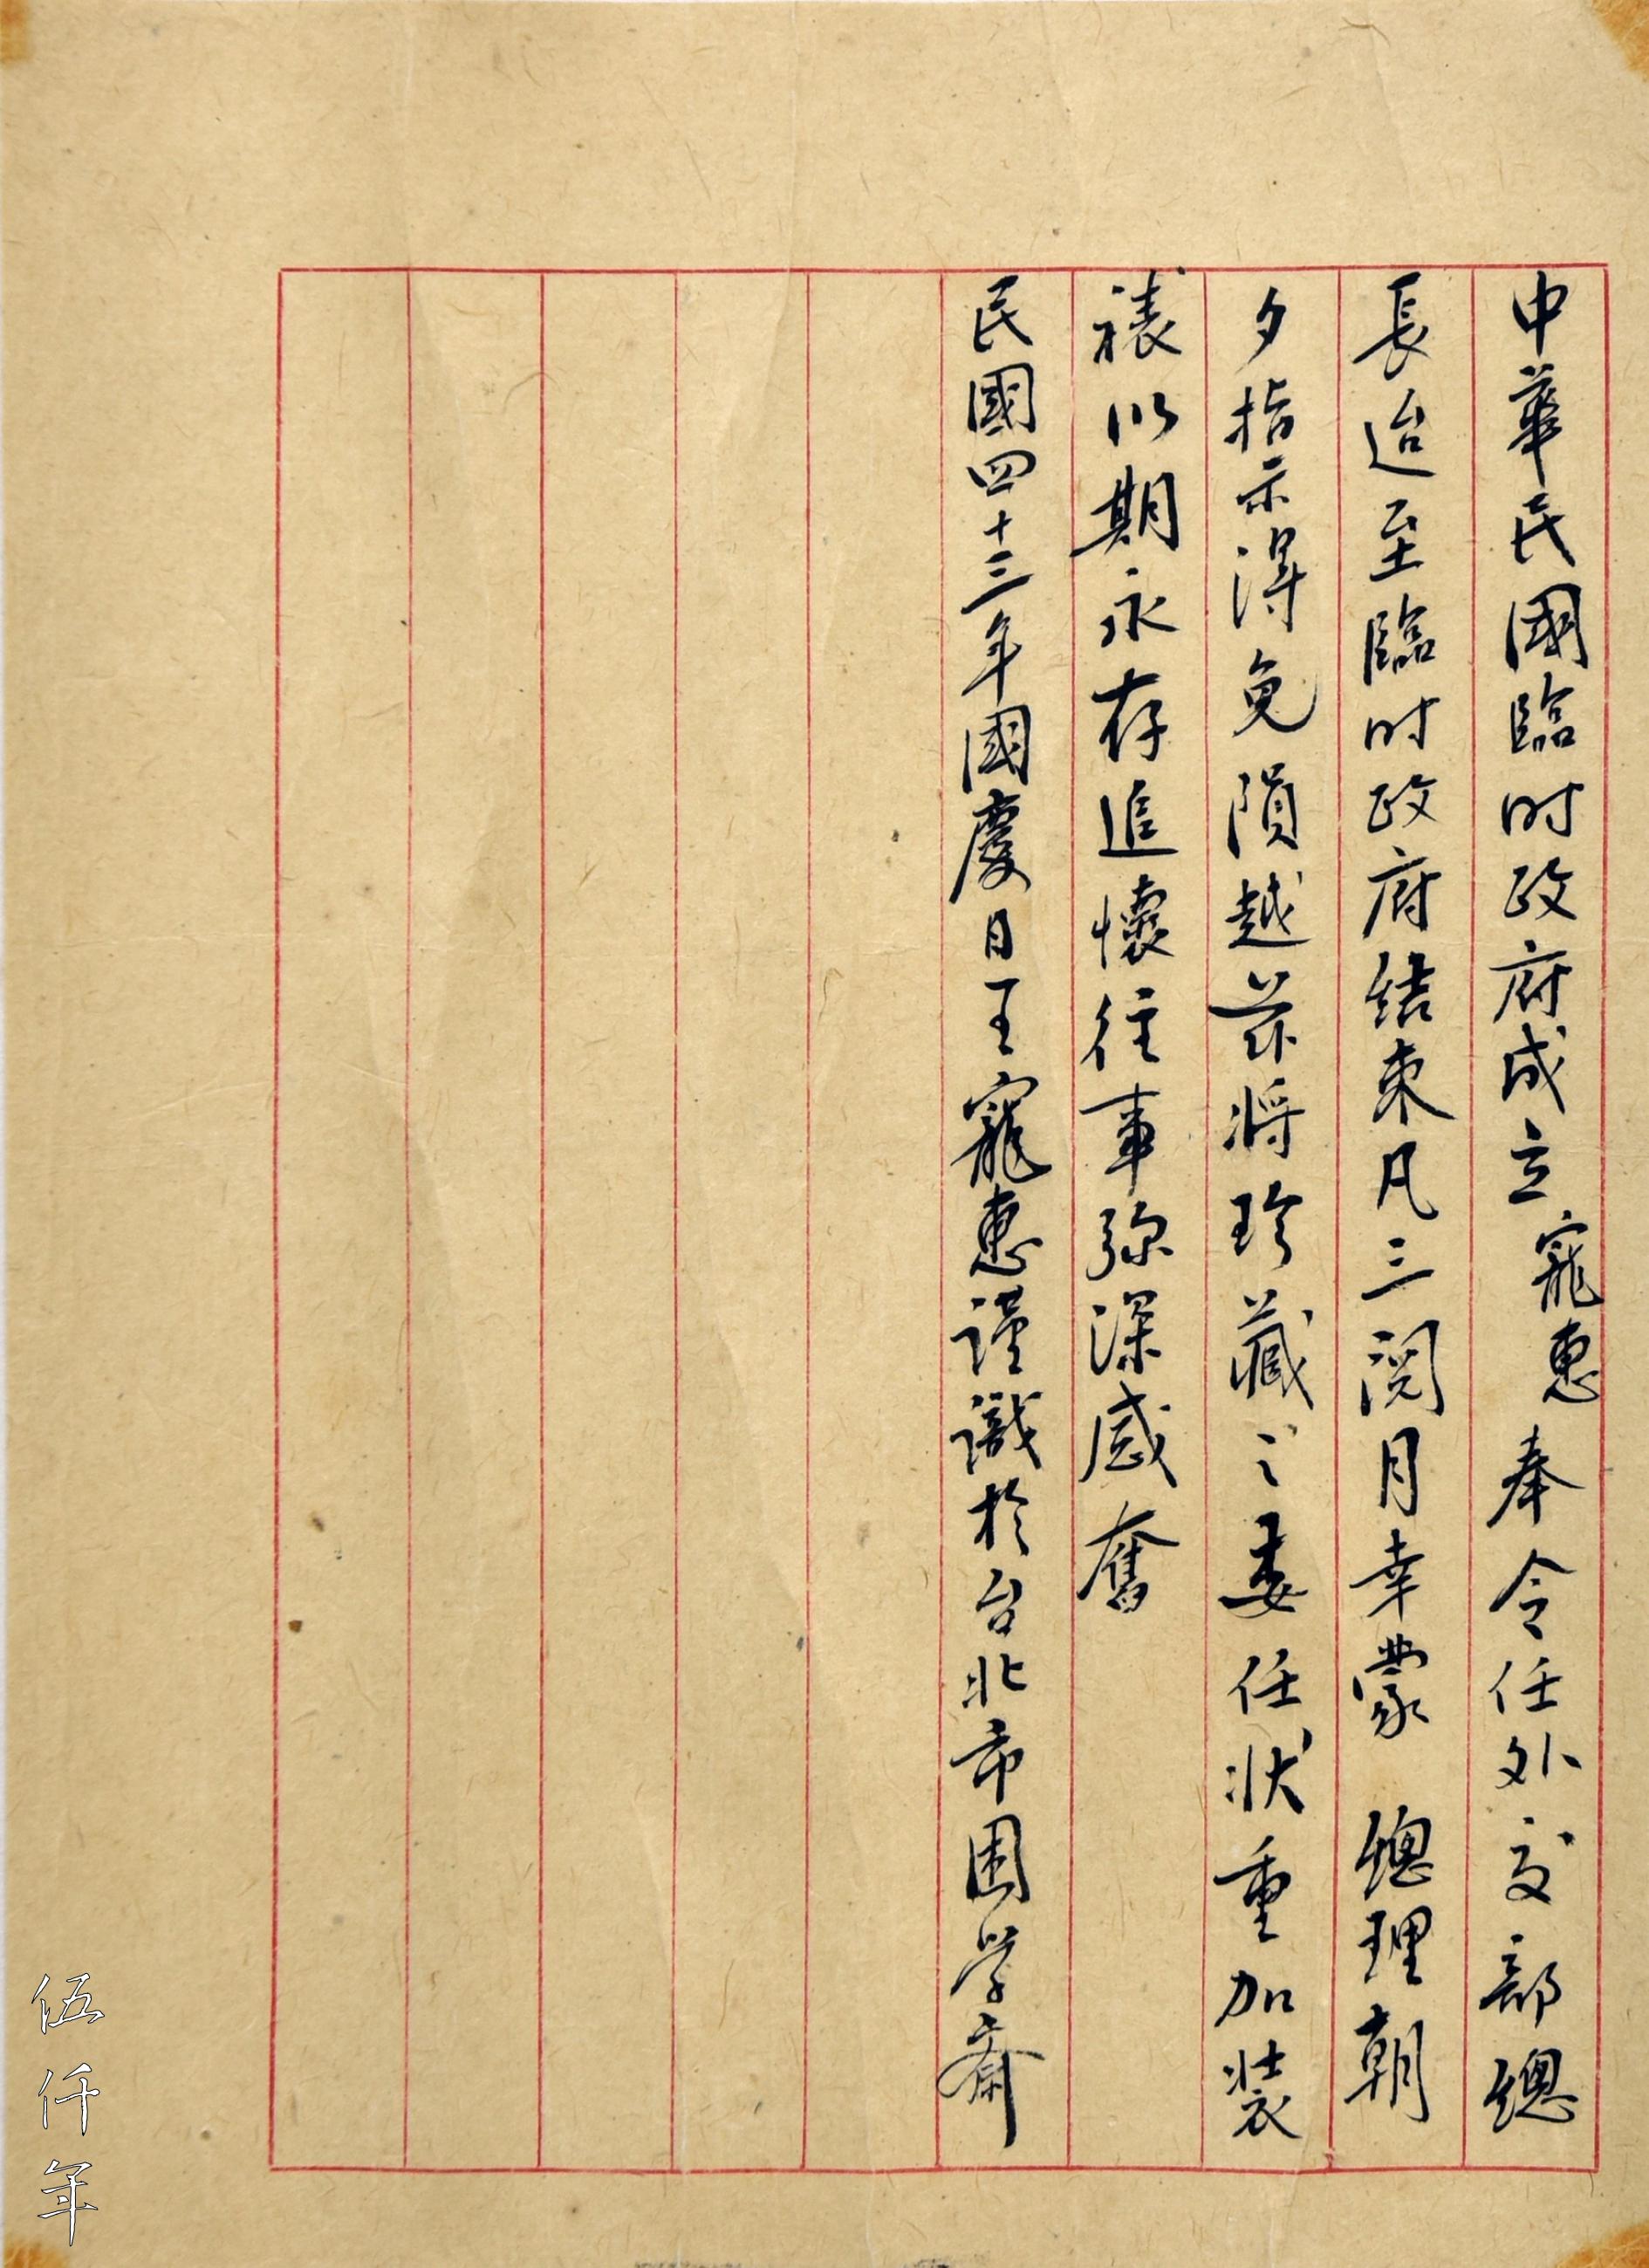 中華民國臨时政府成立寵惠奉令任外交部總
長迨至臨时政府结束凡三閱月幸蒙 總理朝
夕指示得免隕越兹将珍藏之委任状重加装
裱以期永存追懷往事弥深感奮
民國四十三年國慶日王寵惠謹識於台北市困学齋
伍仟年